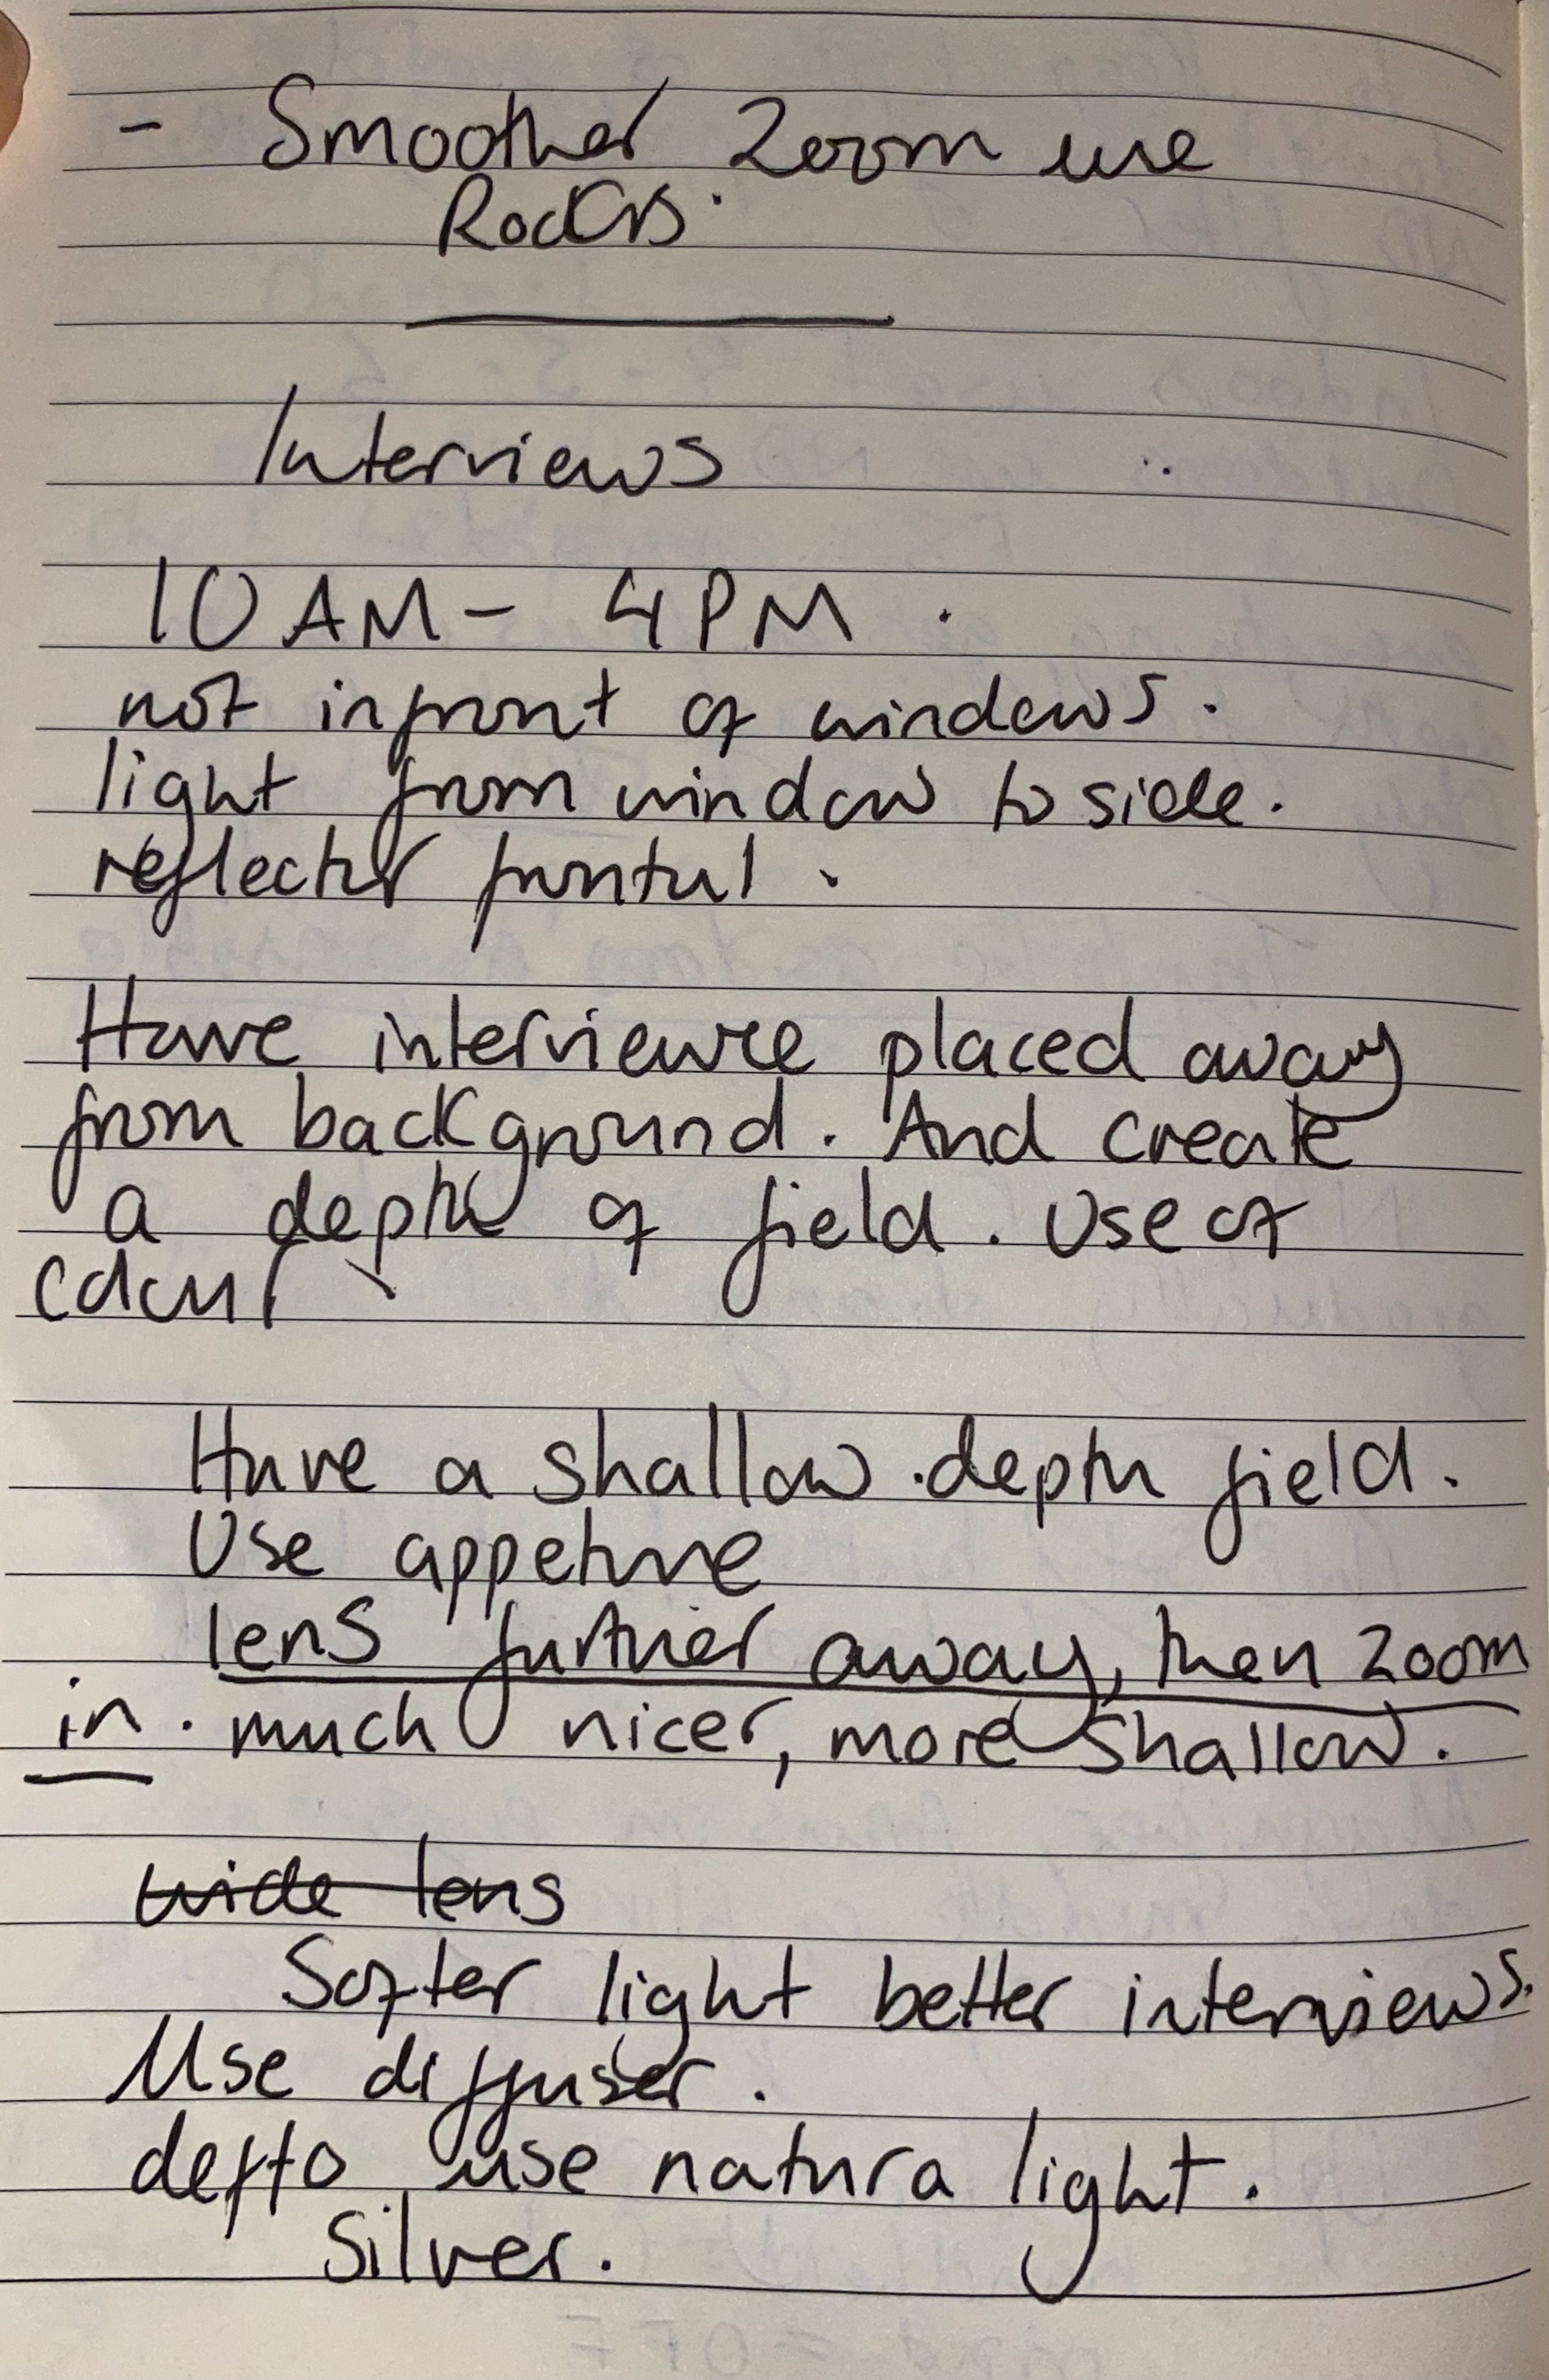 - Smoother Zoom use
Rockers.
Interviews
10AM - 4PM.
not infront of windows.
light from window to side.
reflector frontal.
Have interviewee placed away
from background. And create
a depth of field. Use of
colour.
Have a shallow depth field.
Use appeture
lens further away, then zoom
in. much nicer, more shallow.
wide lens
Softer light better interviews.
Use diffuser.
use natura light.
Silver.